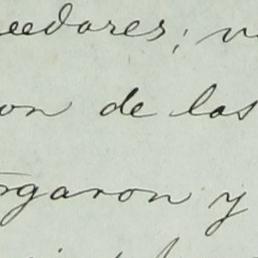 eedores; v
on de las
rgaron y